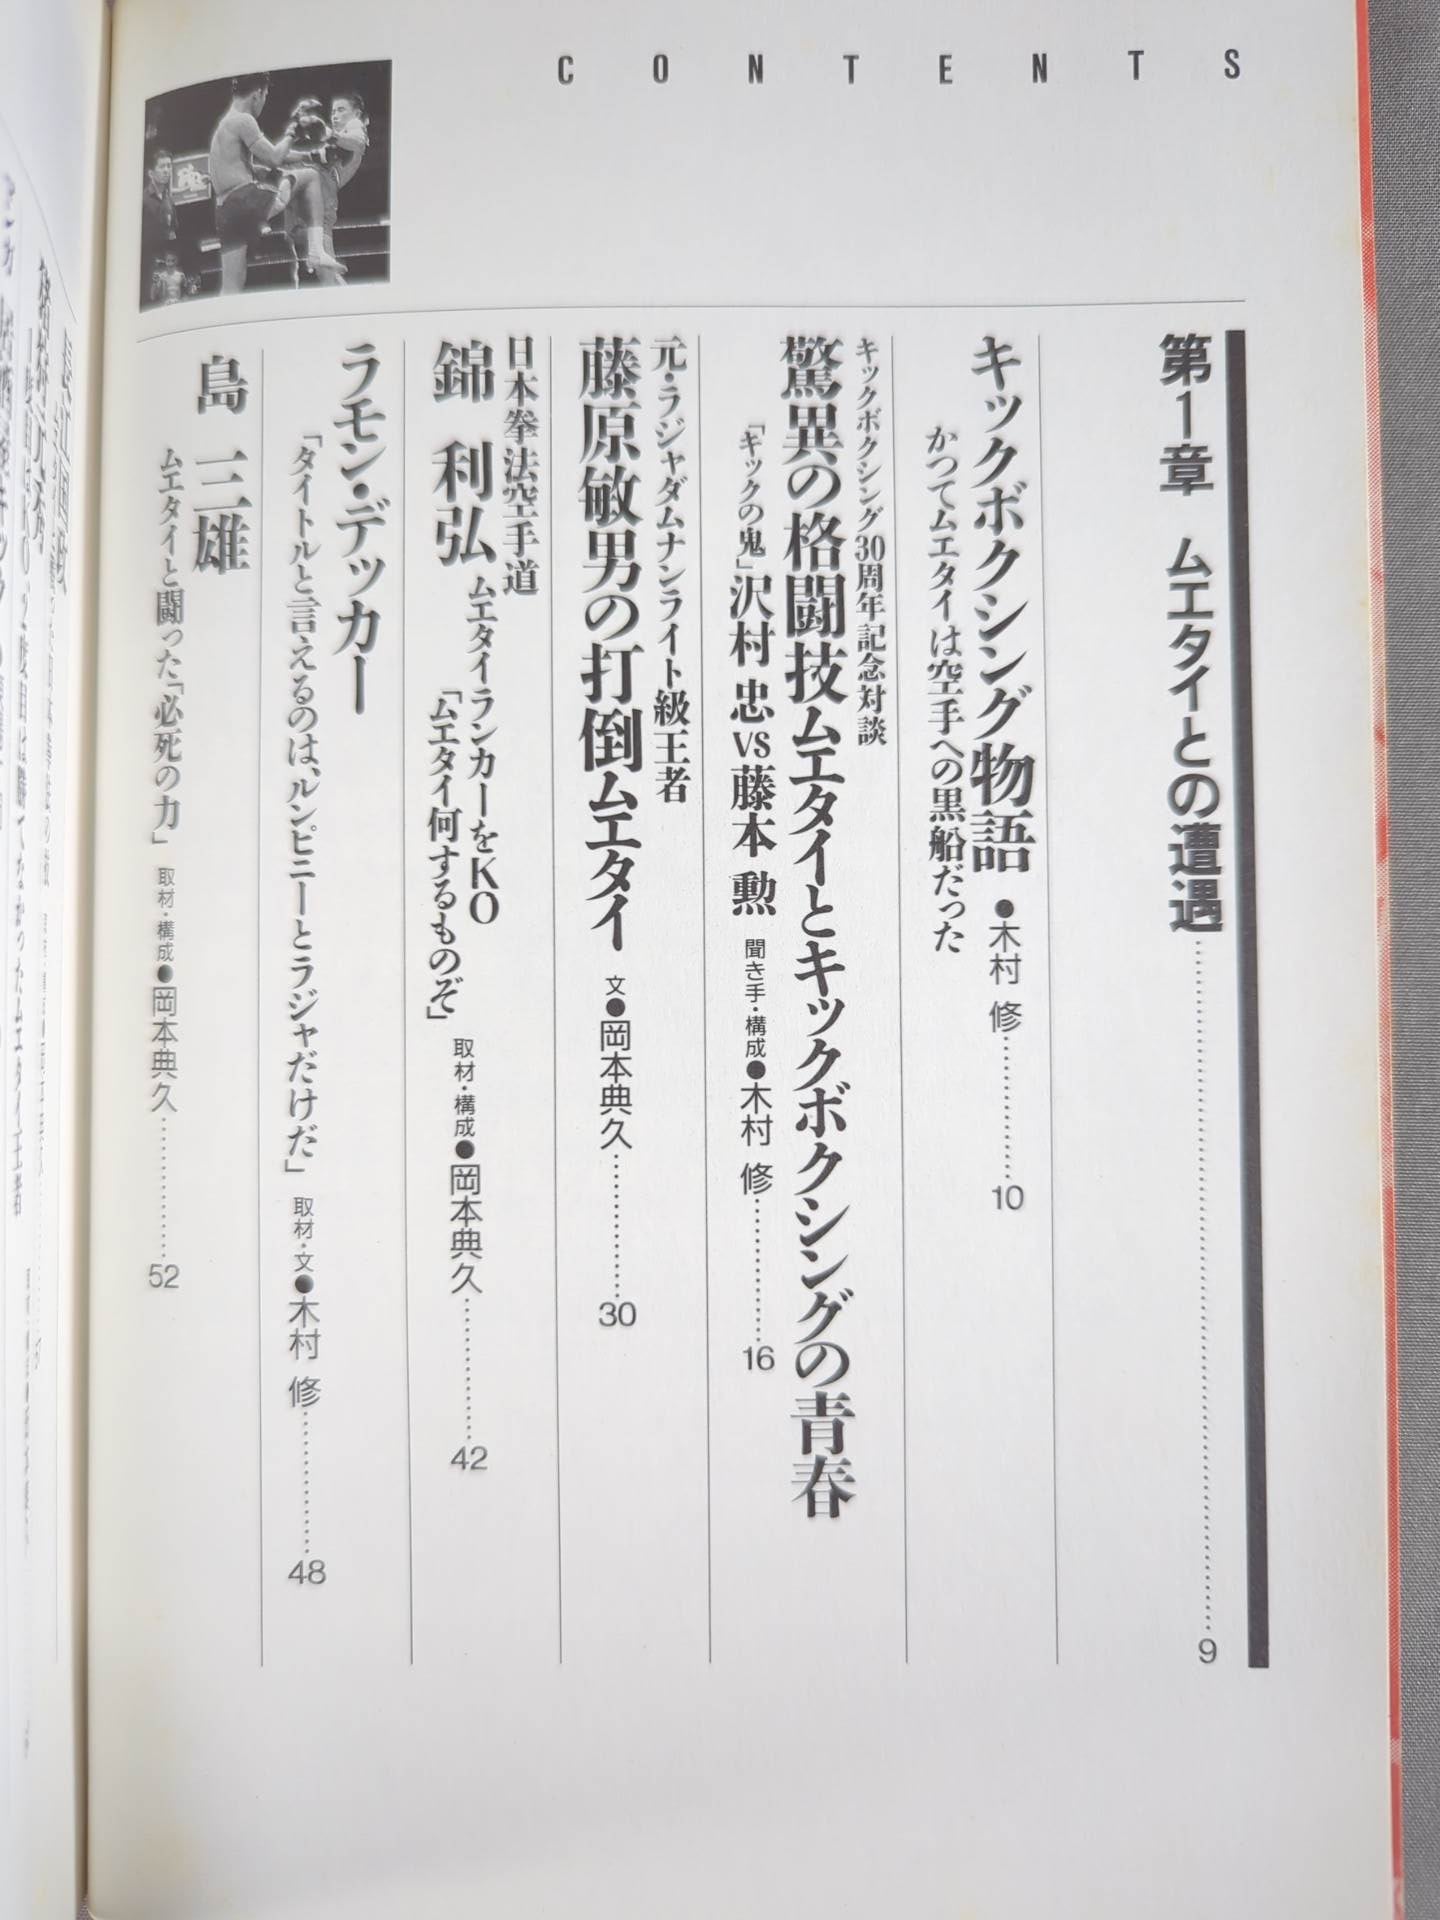 CONTENTS
第1章 ムエタイとの遭遇……………9
キックボクシング物語 ●木村 修……………10
かつてムエタイは空手への黒船だった
キックボクシング30周年記念対談
驚異の格闘技ムエタイとキックボクシングの青春
「キックの鬼」沢村 忠 VS 藤本 勲 聞き手・構成●木村 修……………16
元・ラジャダムナンライト級王者
藤原敏男の打倒ムエタイ 文●岡本典久……………30
日本拳法空手道
錦 利弘 ムエタイランカーをKO
「ムエタイ何するものぞ」 取材・構成●岡本典久……………42
ラモン・デッカー
「タイトルと言えるのは、ルンピニーとラジャだけだ」 取材・文●木村 修……………48
島 三雄
ムエタイと闘った「必死の力」 取材・構成●岡本典久……………52